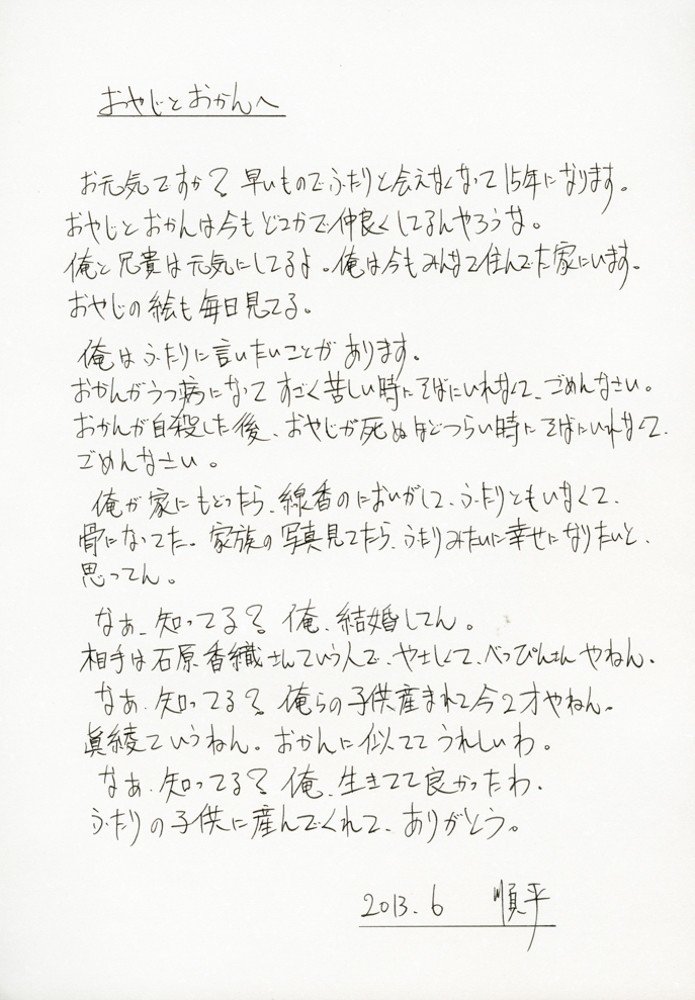 おやじとおかんへ
お元気ですか? 早いもので、ふたりと会えなくなって15年になります。
おやじとおかんは今もどこかで仲良くしてるんやろうな。
俺と兄貴は元気にしてるよ。俺は今もみんなで住んでた家にいます。
おやじの絵も毎日見てる。
俺はふたりに言いたいことがあります。
おかんがうつ病になってすごく苦しい時にそばにいれなくて、ごめんなさい。
おかんが自殺した後、おやじが死ぬほどつらい時にそばにいれなくて、
ごめんなさい。
俺が家にもどったら、線香のにおいがして、ふたりともいなくて、
骨になってた。家族の写真見てたら、ふたりみたいに幸せになりたいと、
思ってん。
なぁ、知ってる? 俺、結婚してん。
相手は石原香織さんていう人で、やさしくて、べっぴんさんやねん。
なぁ、知ってる? 俺らの子供産まれて今2才やねん。
眞綾ていうねん。おかんに似ててうれしいわ。
なぁ、知ってる? 俺、生きてて良かったわ。
ふたりの子供に産んでくれて、ありがとう。
2013.6 順平